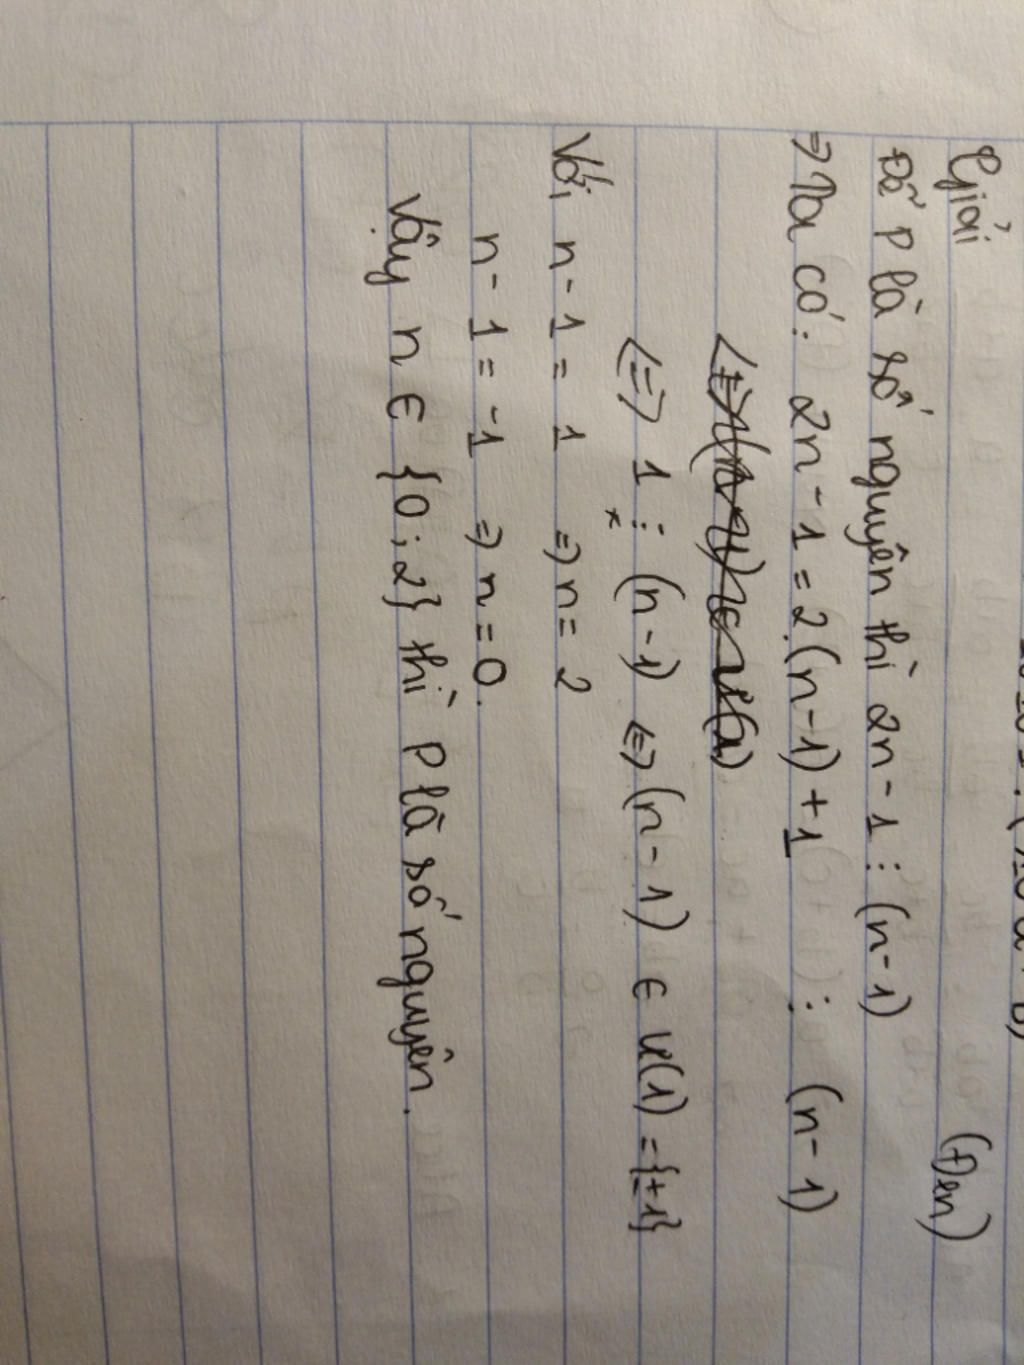 Giải (Đen)
Để P là số nguyên thì 2n - 1 ⋮ (n-1)
=> Ta có: 2n - 1 = 2.(n-1) + 1 ⋮ (n-1)
<=> 1 ⋮ (n-1) <=> (n-1) ∈ Ư(1) = {±1}
Với n - 1 = 1 => n = 2
n - 1 = -1 => n = 0.
Vậy n ∈ {0; 2} thì P là số nguyên.